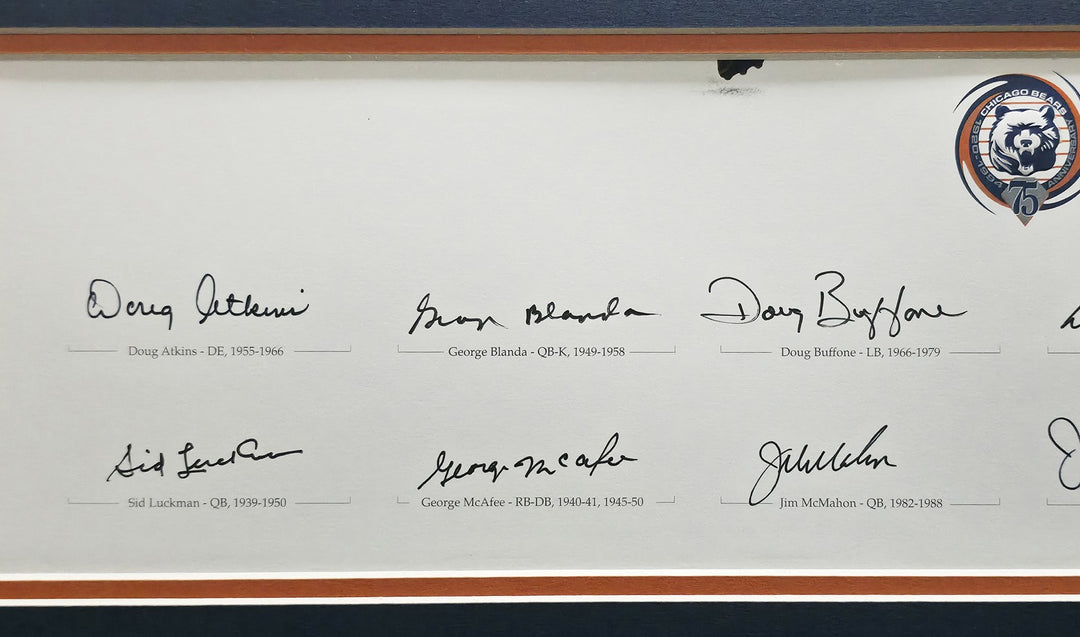 CHICAGO BEARS
1920-1994
ANNIVERSARY
75
Doug Atkins George Blanda Doug Buffone
Doug Atkins - DE, 1955-1966 George Blanda - QB-K, 1949-1958 Doug Buffone - LB, 1966-1979
Sid Luckman George McAfee Jim McMahon
Sid Luckman - QB, 1939-1950 George McAfee - RB-DB, 1940-41, 1945-50 Jim McMahon - QB, 1982-1988